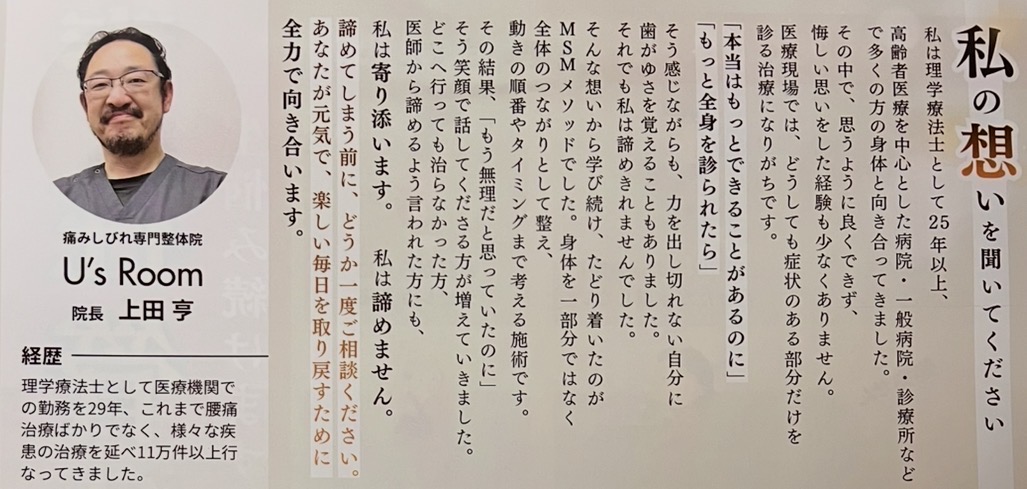 私の想いを聞いてください
私は理学療法士として25年以上、
高齢者医療を中心とした病院・一般病院・診療所など
で多くの方の身体と向き合ってきました。
その中で、思うように良くできず、
悔しい思いをした経験も少なくありません。
医療現場では、どうしても症状のある部分だけを
診る治療になりがちです。
「本当はもっとできることがあるのに」
「もっと全身を診られたら」
そう感じながらも、力を出し切れない自分に
歯がゆさを覚えることもありました。
それでも私は諦めきれませんでした。
そんな想いから学び続け、たどり着いたのが
MSMメソッドでした。身体を一部分ではなく
全体のつながりとして整え、
動きの順番やタイミングまで考える施術です。
その結果、「もう無理だと思っていたのに」
そう笑顔で話してくださる方が増えていきました。
どこへ行っても治らなかった方、
医師から諦めるよう言われた方にも、
私は寄り添います。 私は諦めません。
諦めてしまう前に、どうか一度ご相談ください。
あなたが元気で、楽しい毎日を取り戻すために
全力で向き合います。
痛みしびれ専門整体院
U's Room
院長 上田 亨
経歴
理学療法士として医療機関で
の勤務を29年、これまで腰痛
治療ばかりでなく、様々な疾
患の治療を延べ11万件以上行
なってきました。